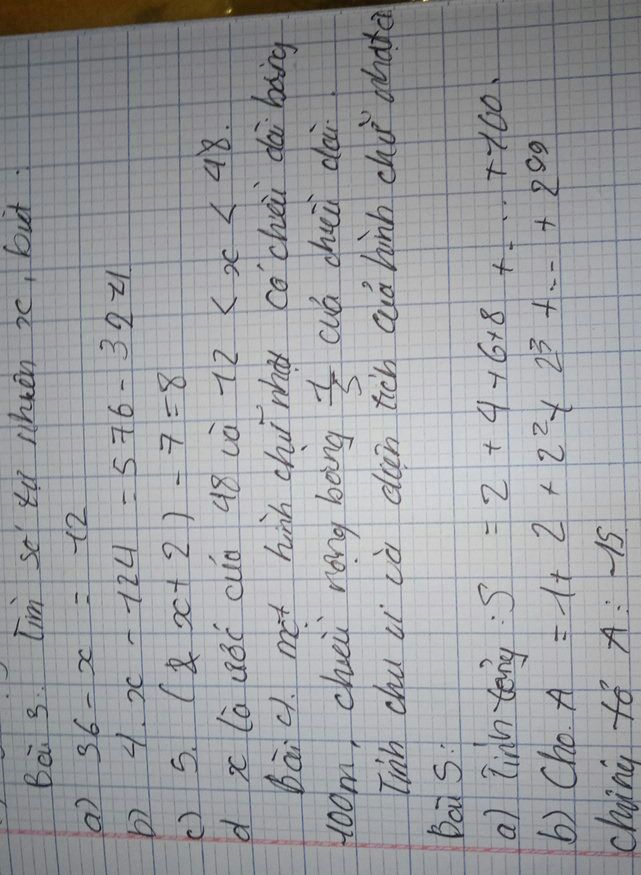 Bài 3: Tìm số tự nhiên x, biết:
a) 36 - x = 12
b) 4. x - 124 = 576 - 324
c) 5. (2x + 2) - 7 = 8
d x là ước của 48 và 12 < x < 48.
Bài 4. một hình chữ nhật có chiều dài bằng
100m, chiều rộng bằng 1/5 của chiều dài.
Tính chu vi và diện tích của hình chữ nhật
Bài 5:
a) Tính tổng: S = 2 + 4 + 6 + 8 + ... + 100.
b) Cho. A = 1 + 2 + 2² + 2³ + ... + 2⁹⁹
chứng tỏ A : 15